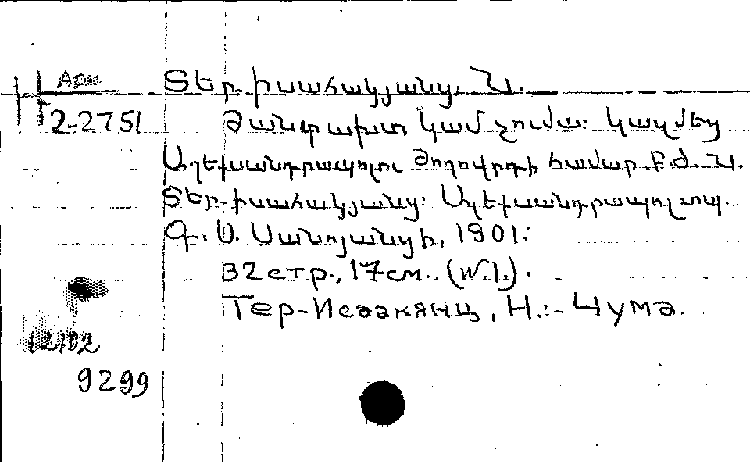 Арм
2-2751
Տեր-Իսահակյանց, Ն.
Ժանտախտ կամ չումա: Կազմեց
Ալեքսանդրապոլու ժողովրդի համար բժ. Ն.
Տեր-Իսահակյանց: Ալեքսանդրապոլ, տպ.
Գ. Ս. Սանոյանցի, 1901:
32 стр., 17 см. (И.).
Тер-Исаакянц, Н.:- Чума.
12102
9299